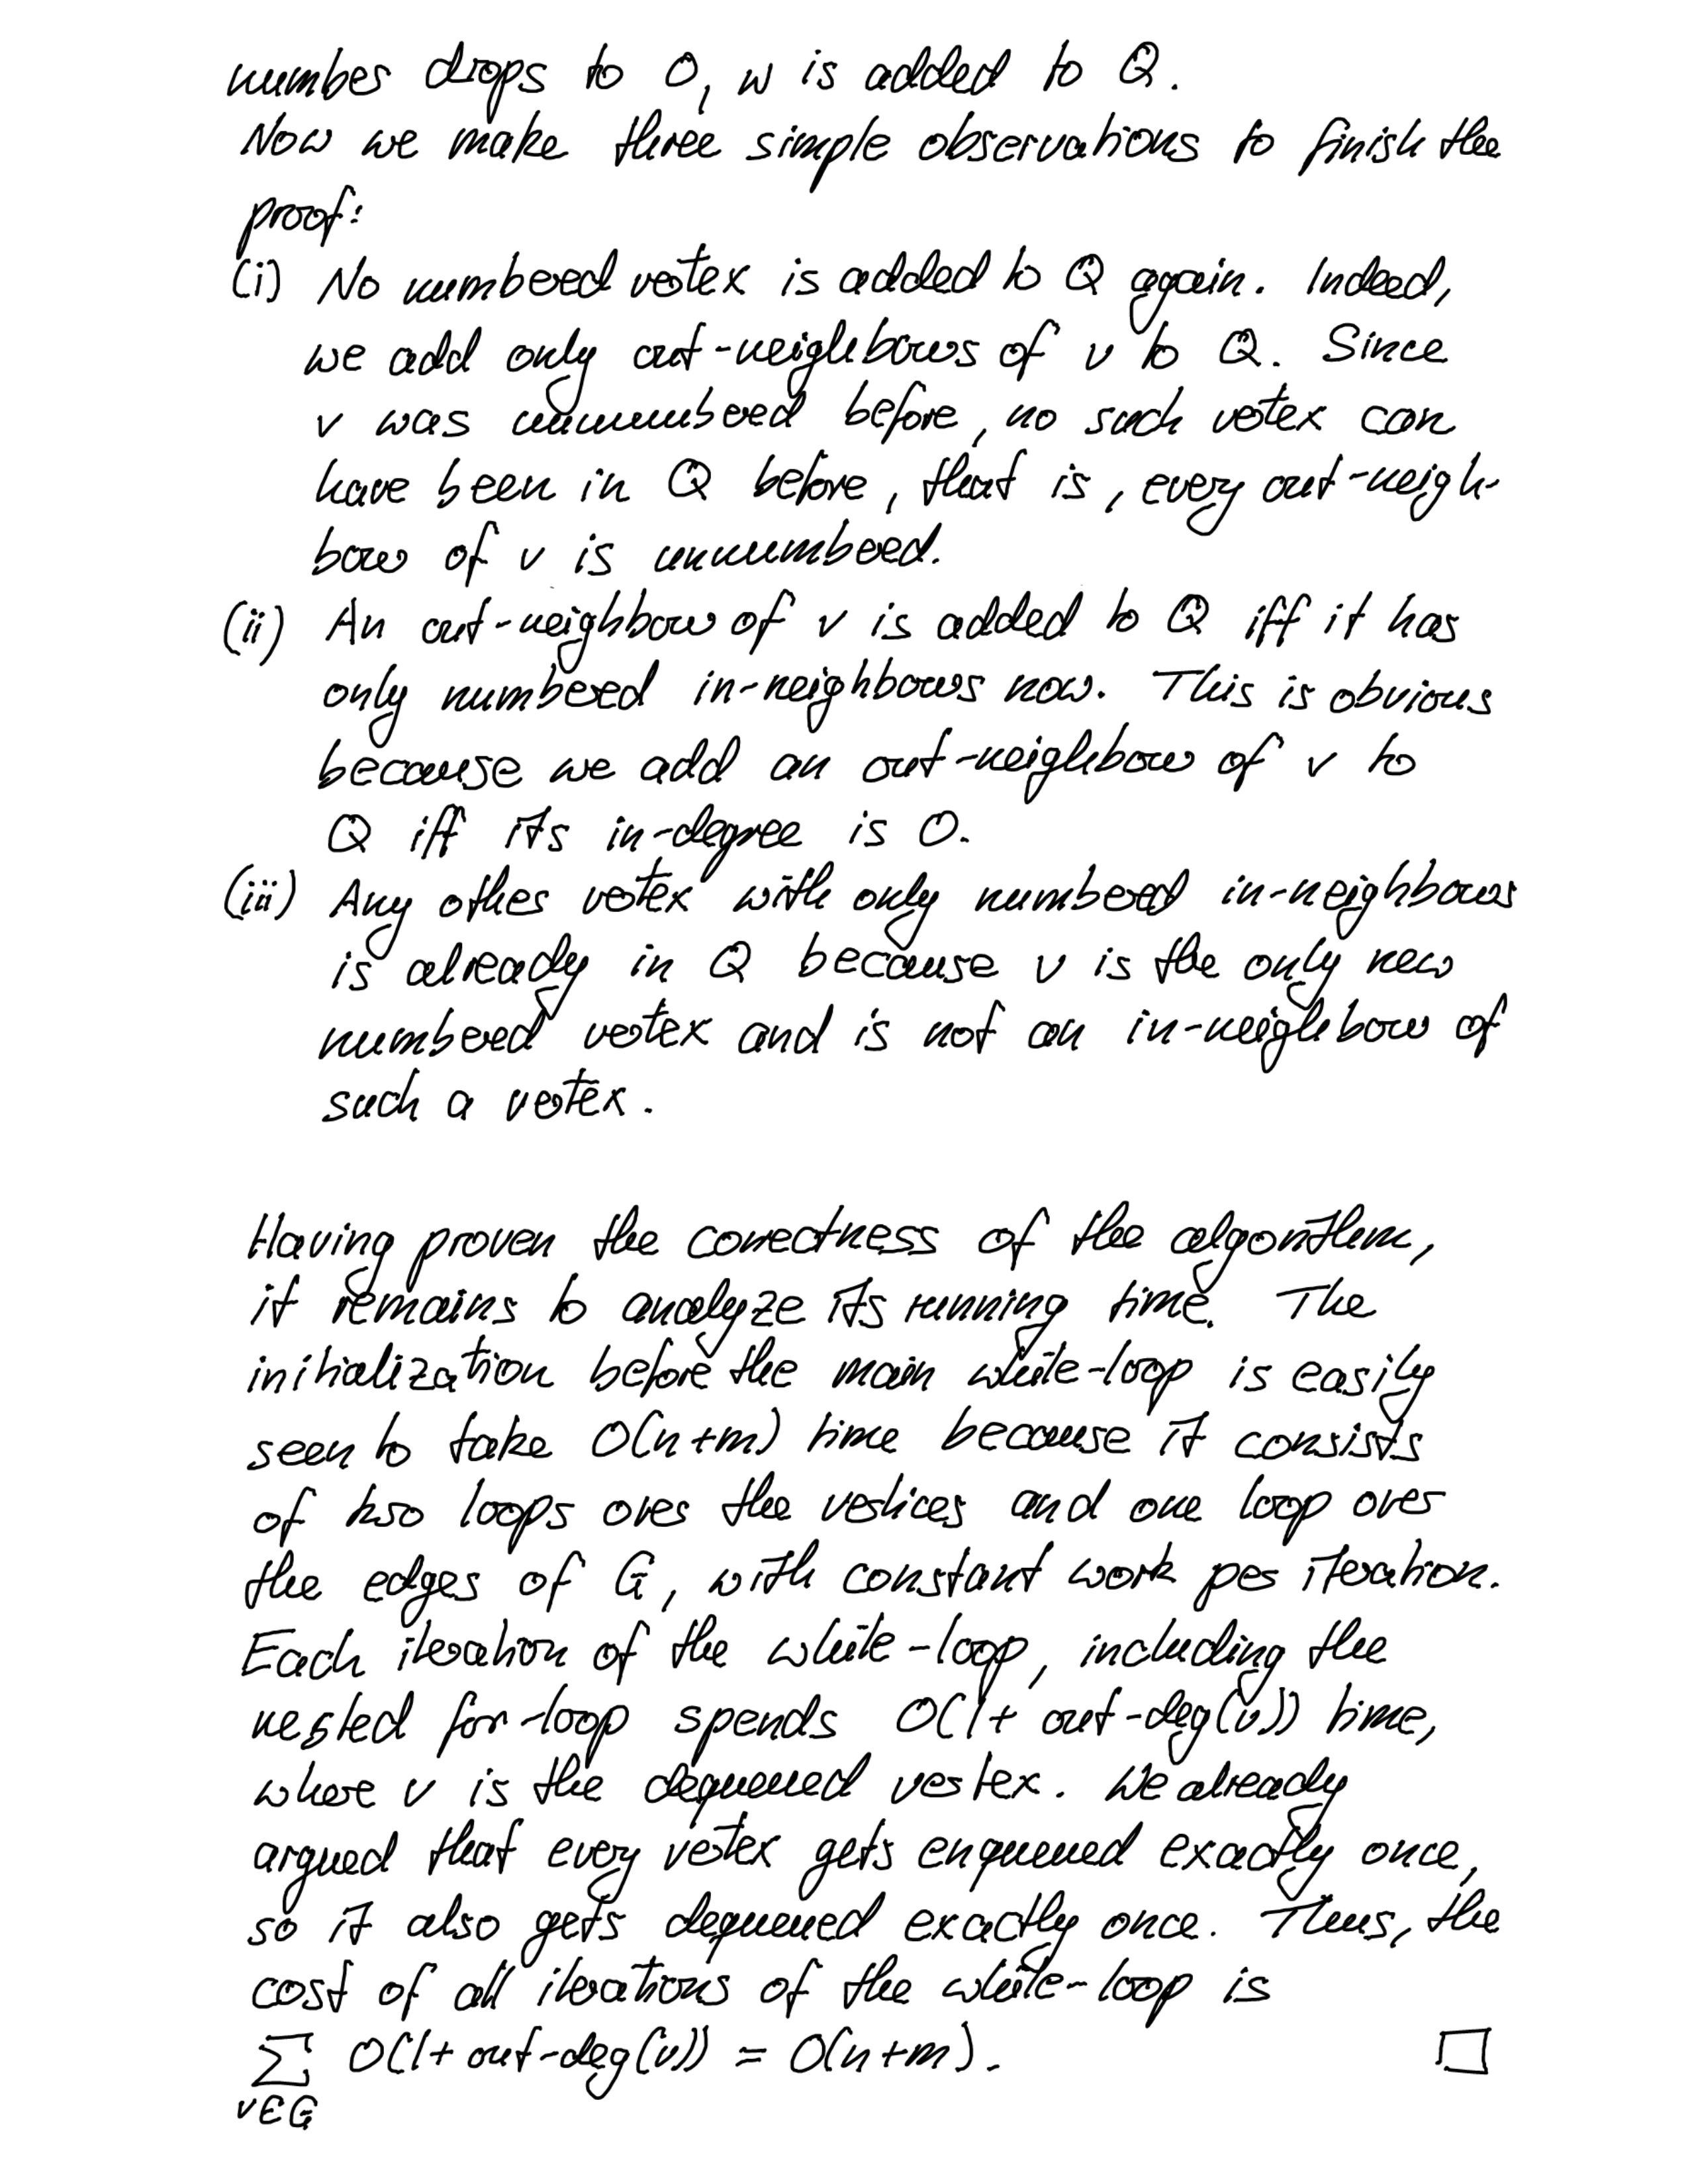 number drops to 0, w is added to Q.
Now we make three simple observations to finish the
proof:
(i) No numbered vertex is added to Q again. Indeed,
we add only out-neighbours of v to Q. Since
v was unnumbered before, no such vertex can
have been in Q before, that is, every out-neigh-
bour of v is unnumbered.
(ii) An out-neighbour of v is added to Q iff it has
only numbered in-neighbours now. This is obvious
because we add an out-neighbour of v to
Q iff its in-degree is 0.
(iii) Any other vertex with only numbered in-neighbours
is already in Q because v is the only new
numbered vertex and is not an in-neighbour of
such a vertex.
Having proven the correctness of the algorithm,
it remains to analyze its running time. The
initialization before the main while-loop is easily
seen to take O(n+m) time because it consists
of two loops over the vertices and one loop over
the edges of G, with constant work per iteration.
Each iteration of the while-loop, including the
nested for-loop spends O(1+ out-deg(v)) time,
where v is the dequeued vertex. We already
argued that every vertex gets enqueued exactly once,
so it also gets dequeued exactly once. Thus, the
cost of all iterations of the while-loop is
∑ O(1+ out-deg(v)) = O(n+m). □
v∈G